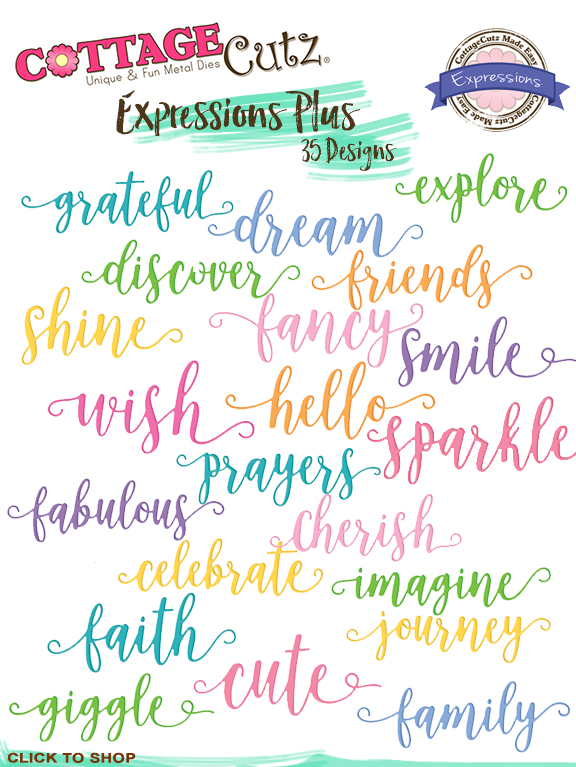 COTTAGE Cutz®
Unique & Fun Metal Dies
CottageCutz Made Easy
Expressions
CottageCutz Made Easy
Expressions Plus
35 Designs
grateful
explore
dream
discover
friends
shine
fancy
smile
wish
hello
sparkle
prayers
fabulous
cherish
celebrate
imagine
faith
journey
cute
giggle
family
CLICK TO SHOP